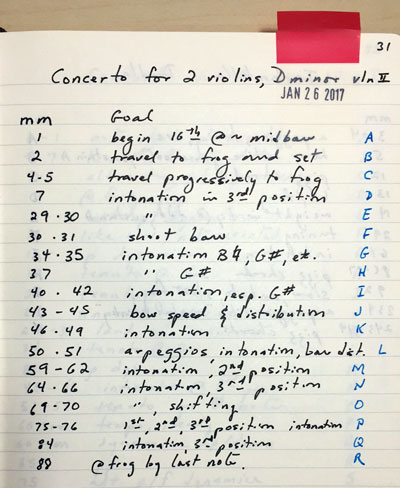 31
Concerto for 2 violins, D minor vln II
JAN 26 2017
mm Goal
1 begin 16th @ ~ midbow A
2 travel to frog and set B
4-5 travel progressively to frog C
7 intonation in 3rd position D
29-30 " E
30-31 short bow F
34-35 intonation B♮, G#, etc. G
37 " G# H
40-42 intonation, esp. G# I
43-45 bow speed & distribution J
46-49 intonation K
50-51 arpeggios, intonation, bow dist. L
59-62 intonation, 2nd position M
64-66 intonation, 3rd position N
69-70 ", shifting O
75-76 1st, 2nd, 3rd position intonation P
84 intonation, 3rd position Q
88 @ frog by last note. R